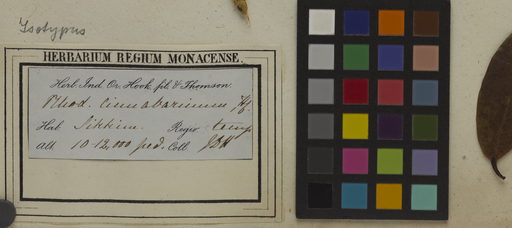 Isotypus
HERBARIUM REGIUM MONACENSE.
Herb. Ind. Or. Hook. fil. & Thomson.
Rhod. cinnabarinum Hf.
Hab. Sikkim. Regio temp.
Alt. 10-12,000 ped. Coll. JDH